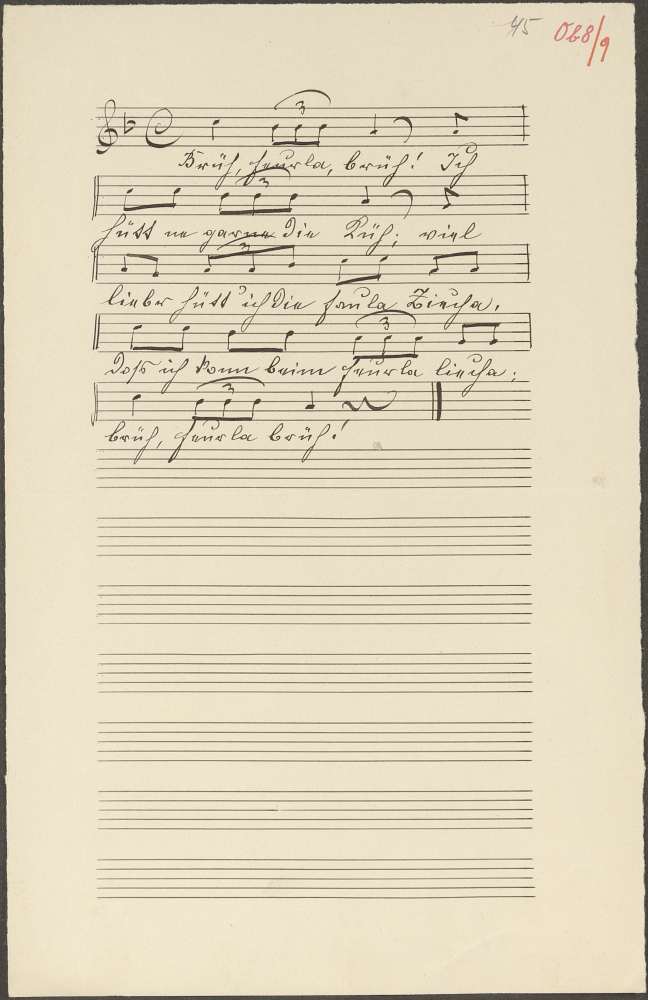 45 Ob8/9
3
Brüh, Feurla, brüh! Ich
3
hütt ne garne die Küh; viel
3
lieber hütt' ich die faula Ziecha,
3
doß ich konn beim Feurla liecha;
3
brüh, Feurla brüh!